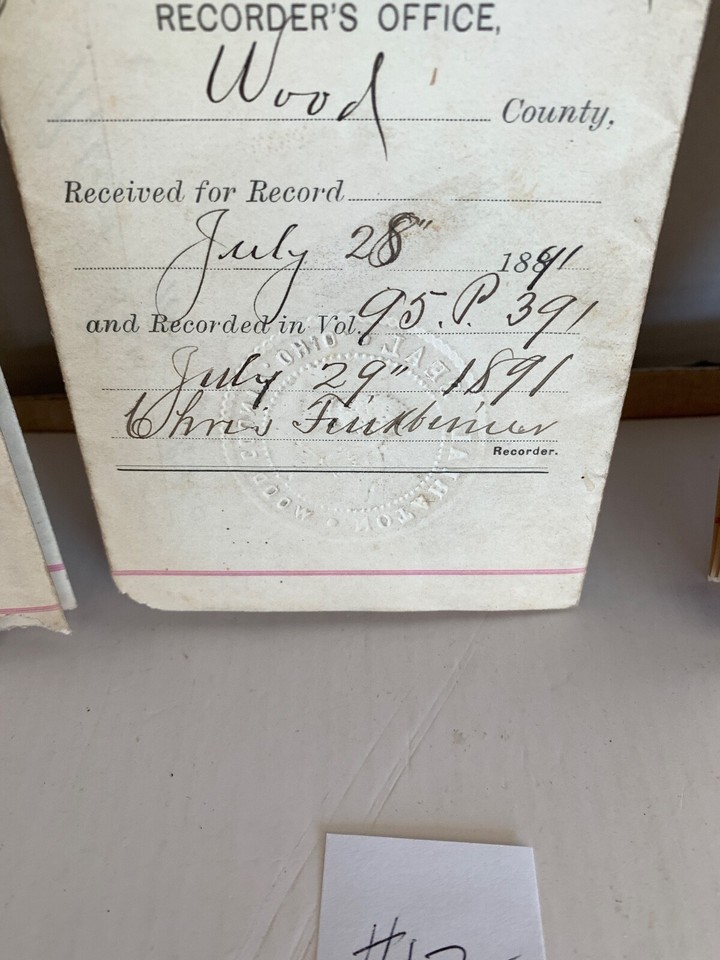 RECORDER'S OFFICE,
Wood County,
Received for Record
July 28" 1891
and Recorded in Vol. 95. P. 391
July 29" 1891
Chris Finkbeiner
Recorder.
OHIO SEAL
WOOD CO.